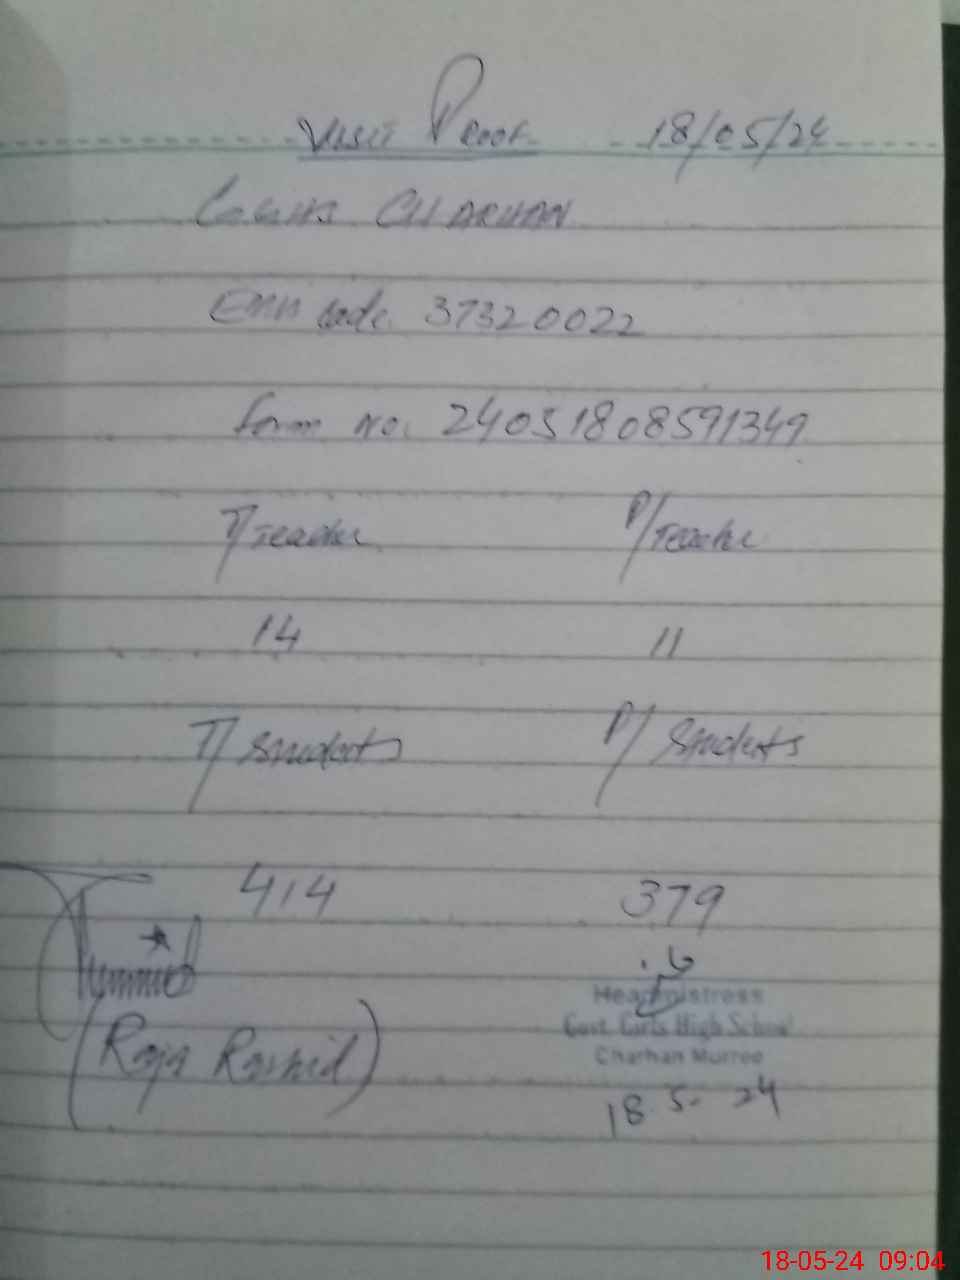 Visit Proof 18/05/24
GGHS CHARHAN
Emis code 37320022
Form no. 24051808591349
T/Teacher P/Teacher
14 11
T/Students P/Students
414 379
(Raja Rashid)
Headmistress
Govt. Girls High School
Charhan Murree
18.5.24
18-05-24 09:04